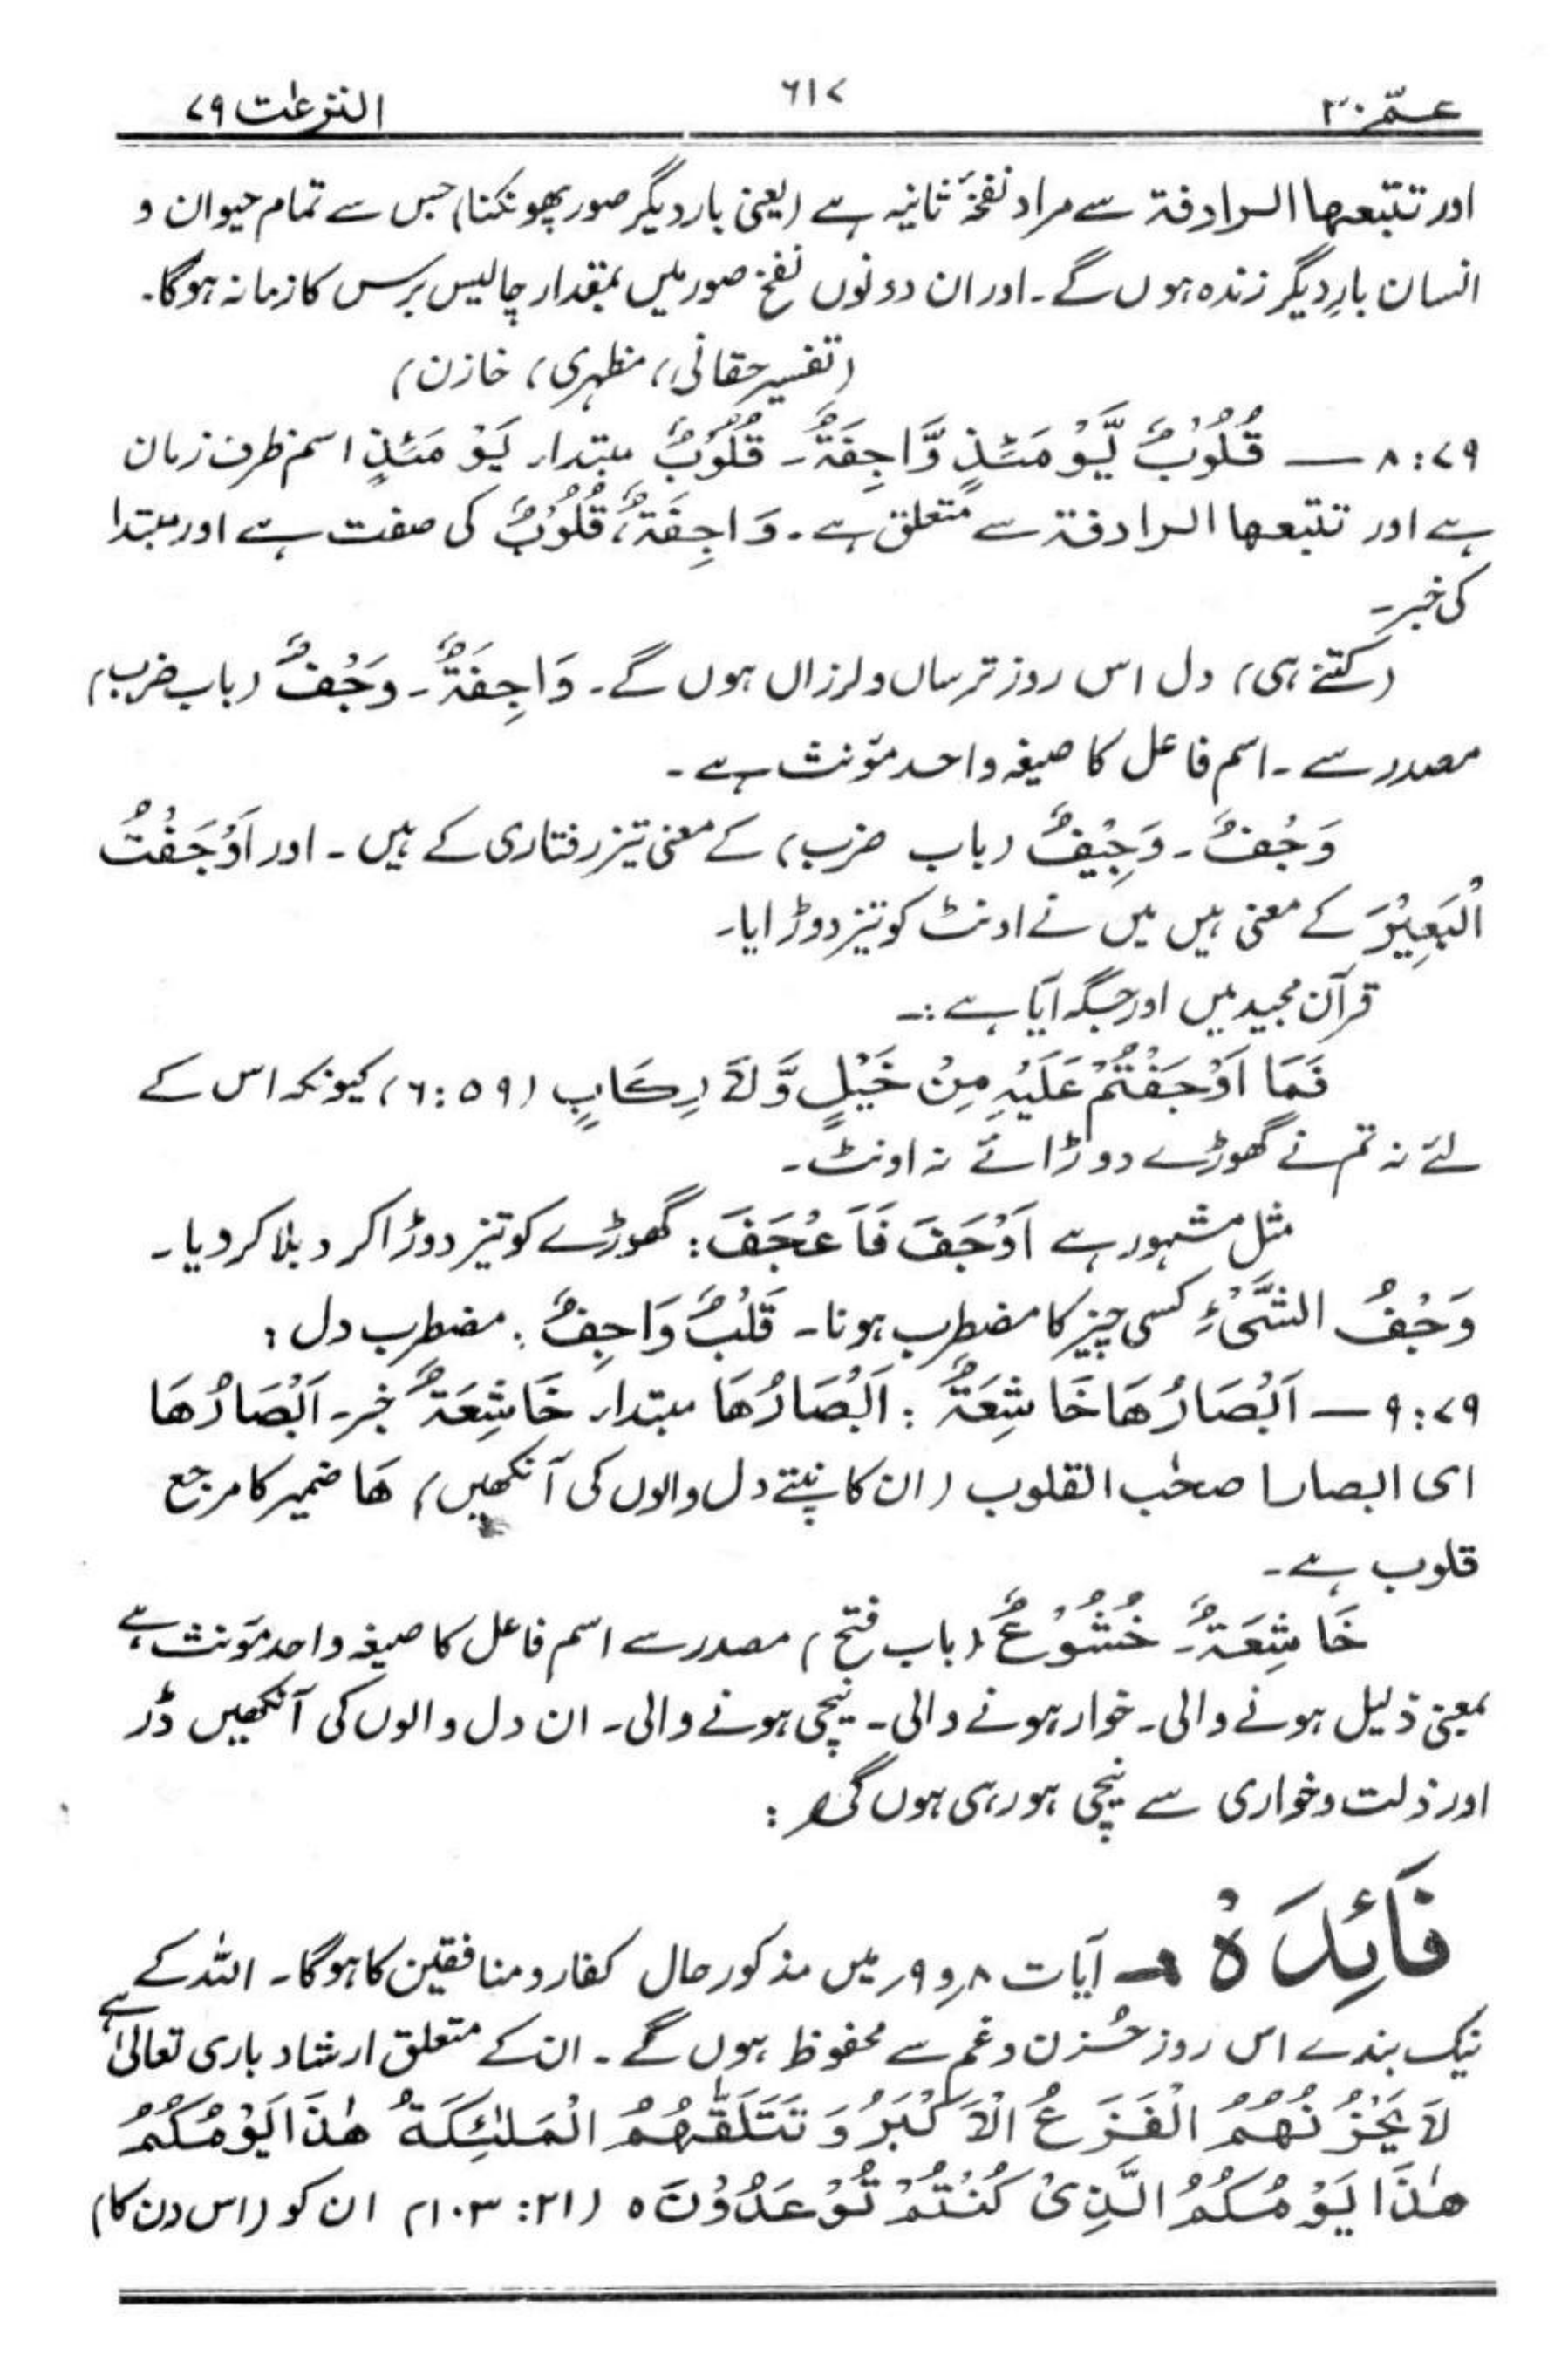 عمّ ۳۰ ۶۱۷ النٰزعٰت ۷۹
اور تتبعہا الرادفۃ سے مراد نفخۂ ثانیہ ہے (یعنی بار دیگر صور پھونکنا) جس سے تمام حیوان و
انسان بارِ دیگر زندہ ہوں گے۔ اور ان دونوں نفخ صور میں بمقدار چالیس برس کا زمانہ ہوگا۔
(تفسیر حقانی، مظہری، خازن)
۷۹: ۸ — قُلُوْبٌ یَّوْمَئِذٍ وَّاجِفَۃٌ۔ قُلُوْبٌ مبتدار یَوْمَئِذٍ اسم ظرف زمان
ہے اور تتبعہا الرادفۃ سے متعلق ہے۔ وَاجِفَۃٌ، قُلُوْبٌ کی صفت ہے اور مبتدا
کی خبر۔
(کتنے ہی) دل اس روز ترساں و لرزاں ہوں گے۔ وَاجِفَۃٌ۔ وَجْفٌ (باب ضرب)
مصدر سے۔ اسم فاعل کا صیغہ واحد مؤنث ہے۔
وَجْفٌ۔ وَجِیْفٌ (باب ضرب) کے معنی تیز رفتاری کے ہیں۔ اور اَوْجَفْتُ
الْبَعِیْرَ کے معنی ہیں میں نے اونٹ کو تیز دوڑایا۔
قرآن مجید میں اور جگہ آیا ہے :۔
فَمَا اَوْجَفْتُمْ عَلَیْہِ مِنْ خَیْلٍ وَّلَا رِکَابٍ (۵۹: ۶) کیونکہ اس کے
لئے نہ تم نے گھوڑے دوڑائے نہ اونٹ۔
مثل مشہور ہے اَوْجَفَ فَاَعْجَفَ: گھوڑے کو تیز دوڑا کر دبلا کر دیا۔
وَجْفُ الشَّیْءِ کسی چیز کا مضطرب ہونا۔ قَلْبٌ وَاجِفٌ: مضطرب دل :
۷۹: ۹ — اَبْصَارُھَا خَاشِعَۃٌ : اَبْصَارُھَا مبتدار خَاشِعَۃٌ خبر۔ اَبْصَارُھَا
ای ابصار اصحٰب القلوب (ان کانپتے دل والوں کی آنکھیں) ھَا ضمیر کا مرجع
قلوب ہے۔
خَاشِعَۃٌ۔ خُشُوْعٌ (باب فتح) مصدر سے اسم فاعل کا صیغہ واحد مؤنث ہے
بمعنی ذلیل ہونے والی۔ خوار ہونے والی۔ نیچی ہونے والی۔ ان دل والوں کی آنکھیں ڈر
اور ذلت و خواری سے نیچی ہو رہی ہوں گی :
فَائِدَہْ ۔ آیات ۸ و ۹ میں مذکور حال کفار و منافقین کا ہوگا۔ اللہ کے
نیک بندے اس روز حُزن و غم سے محفوظ ہوں گے۔ ان کے متعلق ارشاد باری تعالیٰ ہے
لَا یَحْزُنُھُمُ الْفَزَعُ الْاَکْبَرُ وَ تَتَلَقّٰھُمُ الْمَلٰئِکَۃُ ھٰذَا یَوْمُکُمُ
ھٰذَا یَوْمُکُمُ الَّذِیْ کُنْتُمْ تُوْعَدُوْنَ ہ (۲۱: ۱۰۳) ان کو (اس دن کا)